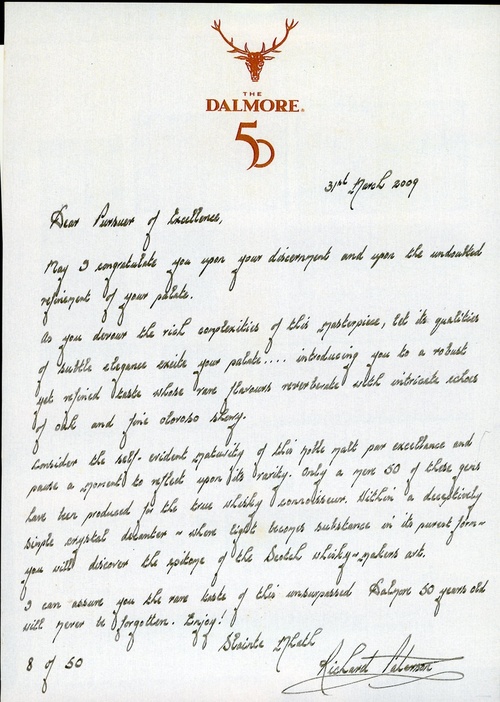 THE
DALMORE
50
31st March 2009
Dear Pursuer of Excellence,
May I congratulate you upon your discernment and upon the undoubted
refinement of your palate.
As you devour the rich complexities of this masterpiece, let its qualities
of subtle elegance excite your palate.... introducing you to a robust
yet refined taste whose rare flavours reverberate with intricate echoes
of oak and fine oloroso sherry.
Consider the self-evident maturity of this noble malt par excellence and
pause a moment to reflect upon its rarity. Only a mere 50 of these gems
have been produced for the true whisky connoisseur. Within a deceptively
simple crystal decanter ~ where light becomes substance in its purest form ~
you will discover the epitome of the Scotch whisky~makers art.
I can assure you the rare taste of this unsurpassed Dalmore 50 years old
will never be forgotten. Enjoy!
Slainte Mhath
8 of 50
Richard Paterson